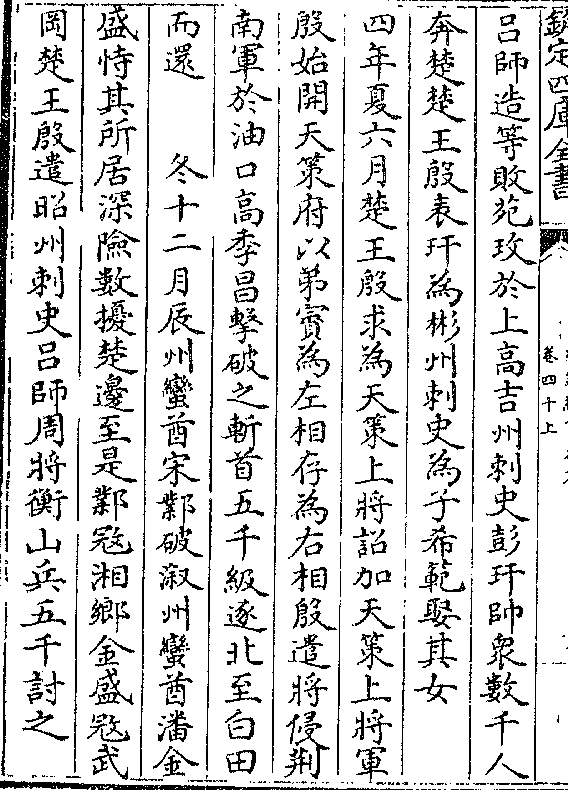 欽定四庫全書
卷四十上
呂師造等敗苑玫於上高吉州刺史彭玕帥衆數千人
奔楚楚王殷表玕為郴州刺史為子希範娶其女
四年夏六月楚王殷求為天策上將詔加天策上將軍
殷始開天策府以弟賓為左相存為右相殷遣將侵荆
南軍於油口高季昌擊破之斬首五千級逐北至白田
而還　冬十二月辰州蠻酋宋鄴破溆州蠻酋潘金
盛恃其所居深險數擾楚邊至是鄴寇湘鄉金盛寇武
岡楚王殷遣昭州刺史呂師周將衡山兵五千討之